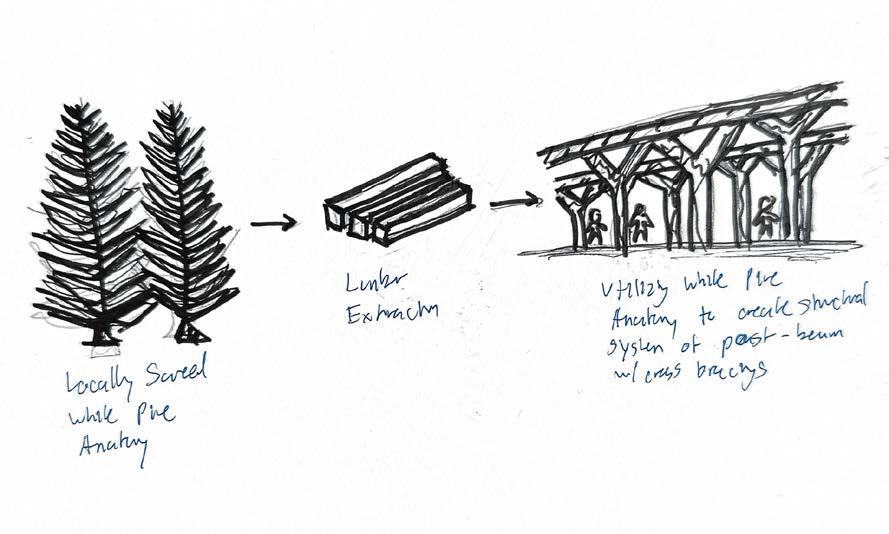 Locally Sourced
White Pine
Anatomy
Lumber
Extraction
Utilizing White Pine
Anatomy to create structural
system of post-beam
w/ cross bracings